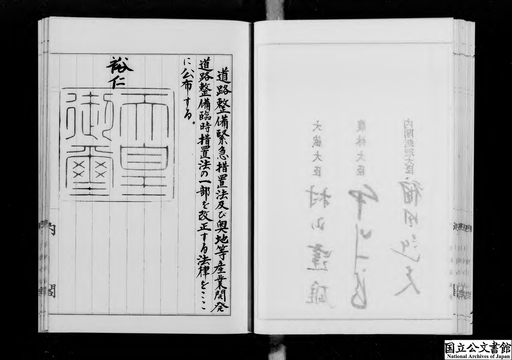 内閣総理大臣 福田赳夫
農林大臣 中川一郎
大蔵大臣 村山達雄
道路整備緊急措置法及び奥地等産業開発
道路整備臨時措置法の一部を改正する法律をここ
に公布する。
裕仁
天皇
御璽
内閣
国立公文書館
National Archives of Japan